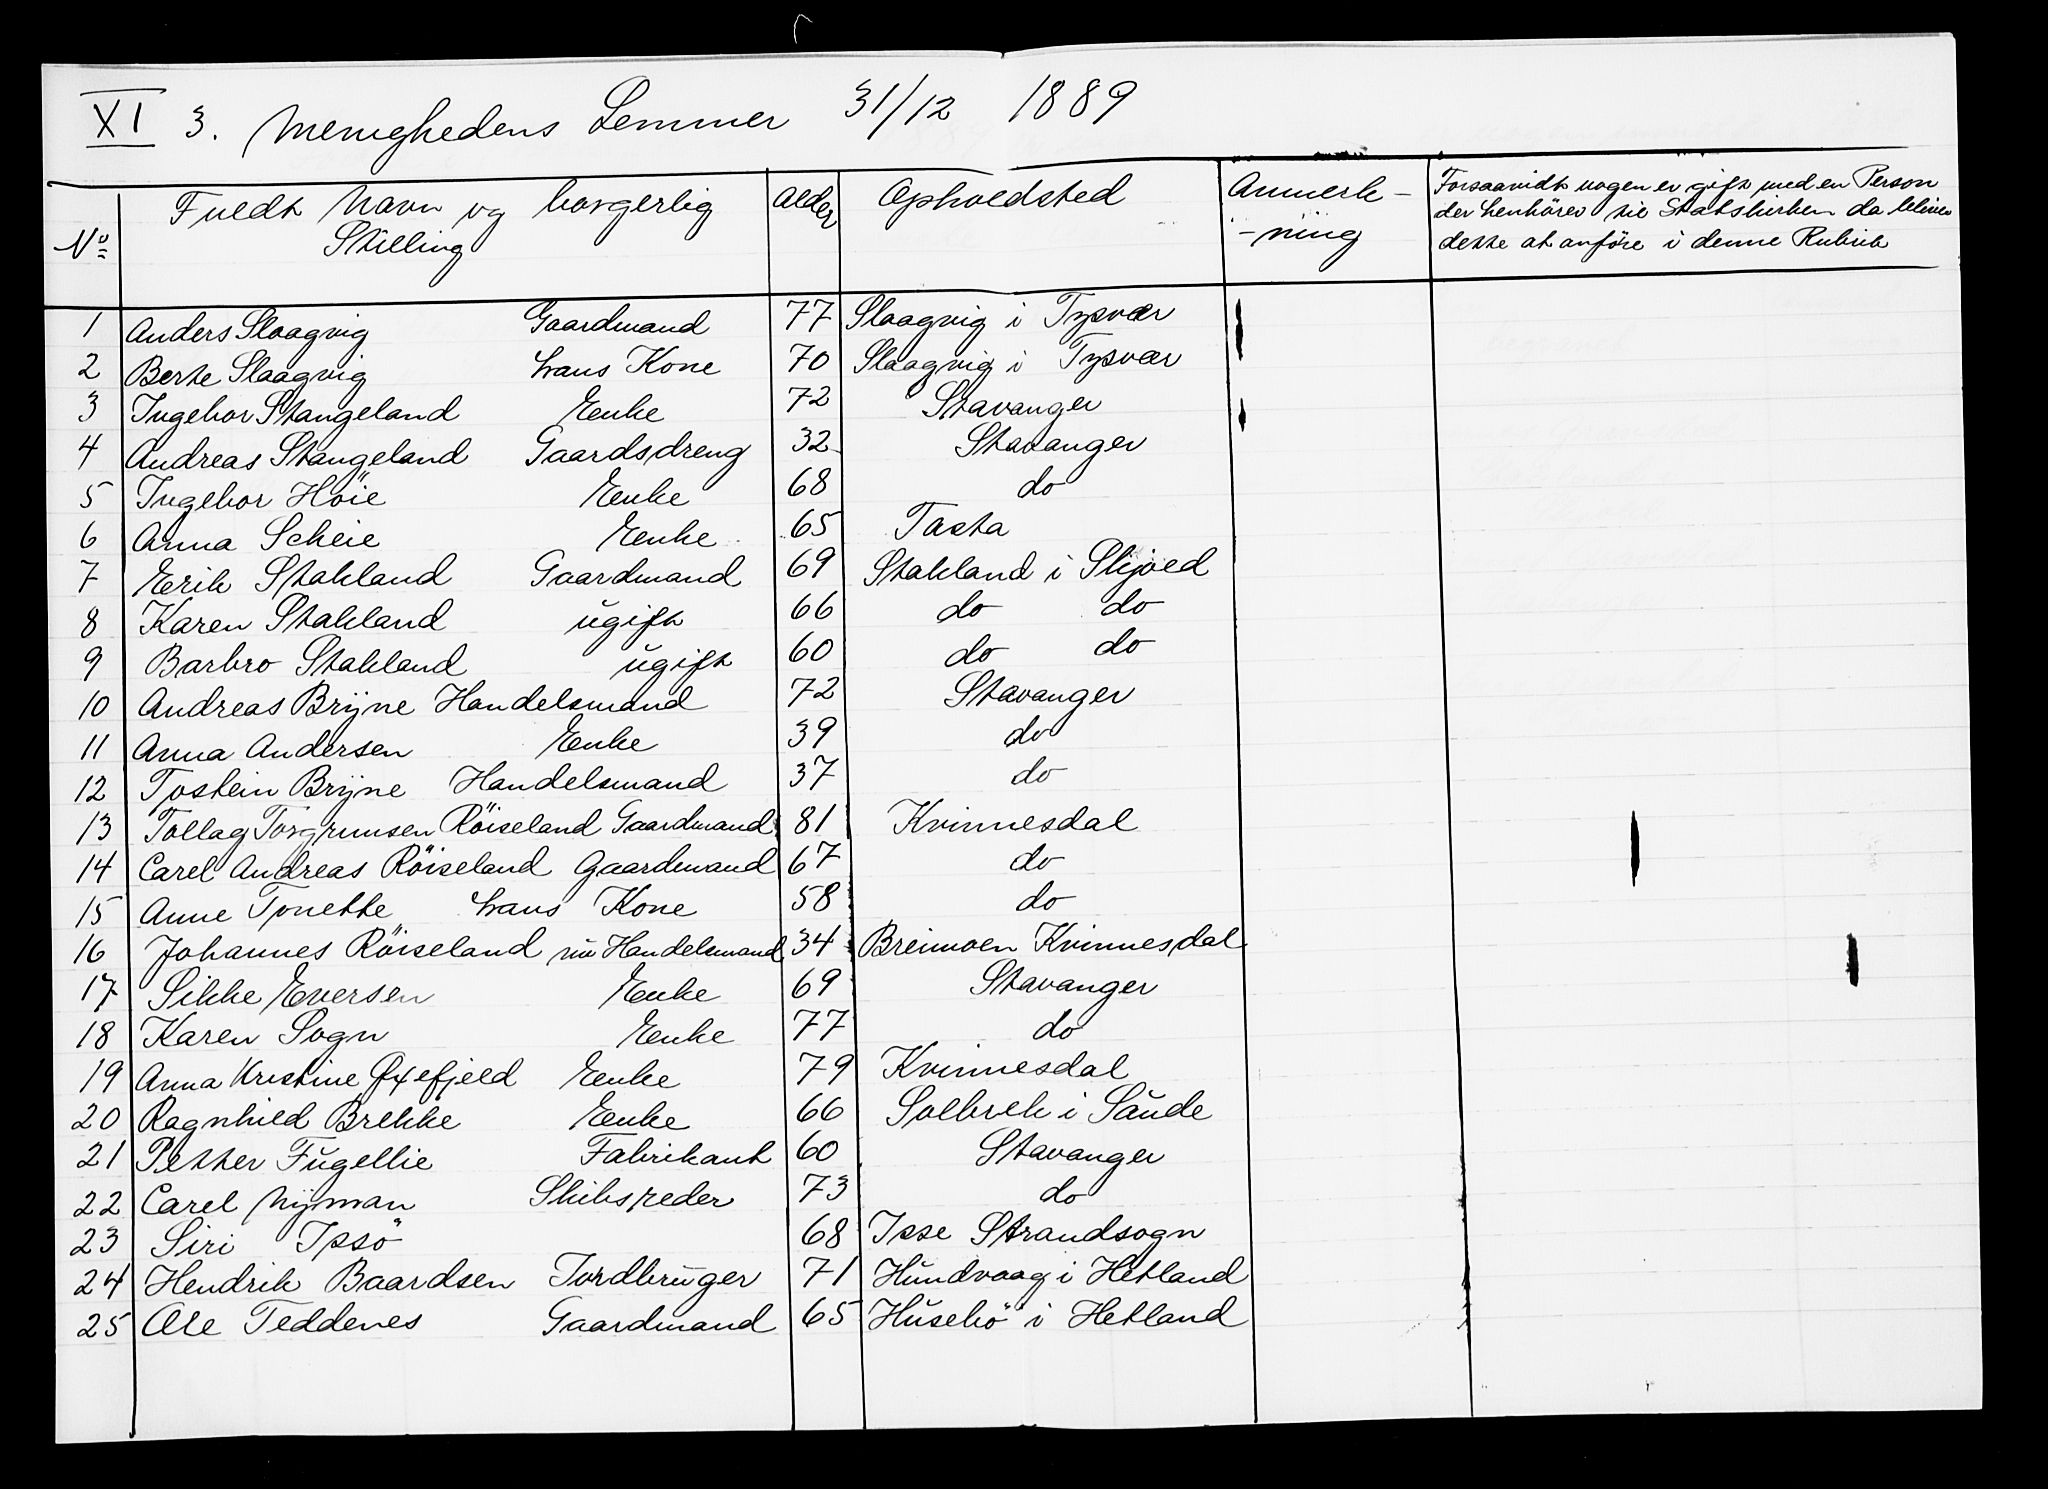 XI 3. Menighedens Lemmer 31/12 1889
No Fuldt Navn og borgerlig Stilling Alder Opholdsted Anmerk- -ning Forsaavidt nogen er gift med en Person der henhörer til Statskirken da bliver dette at anföre i denne Rubrik
1 Anders Slaagvig Gaardmand 77 Slaagvig i Tysvær
2 Berte Slaagvig hans Kone 70 Slaagvig i Tysvær
3 Ingebor Stangeland Enke 72 Stavanger
4 Andreas Stangeland Gaardsdreng 32 Stavanger
5 Ingebor Höie Enke 68 do
6 Anna Scheie Enke 65 Tasta
7 Erik Stakland Gaardmand 69 Stakland i Skjold
8 Karen Stakland ugift 66 do do
9 Barbro Stakland ugift 60 do do
10 Andreas Bryne Handelsmand 72 Stavanger
11 Anna Andersen Enke 39 do
12 Tostein Bryne Handelsmand 37 do
13 Tollag Torgrimsen Röiseland Gaardmand 81 Kvinnesdal
14 Carel Andreas Röiseland Gaardmand 67 do
15 Anne Tonette hans Kone 58 do
16 Johannes Röiseland nu Handelsmand 34 Breimoen Kvinnesdal
17 Sikke Eversen Enke 69 Stavanger
18 Karen Sogn Enke 77 do
19 Anna Kristine Øxefjeld Enke 79 Kvinnesdal
20 Ragnhild Brekke Enke 66 Solbrek i Saude
21 Petter Fugellie Fabrikant 60 Stavanger
22 Carel Nyman Skibsreder 73 do
23 Siri Ipsö 68 Isse Strandsogn
24 Hendrik Baardsen Jordbruger 71 Hundvaag i Hetland
25 Ole Teddenes Gaardmand 65 Husebö i Hetland